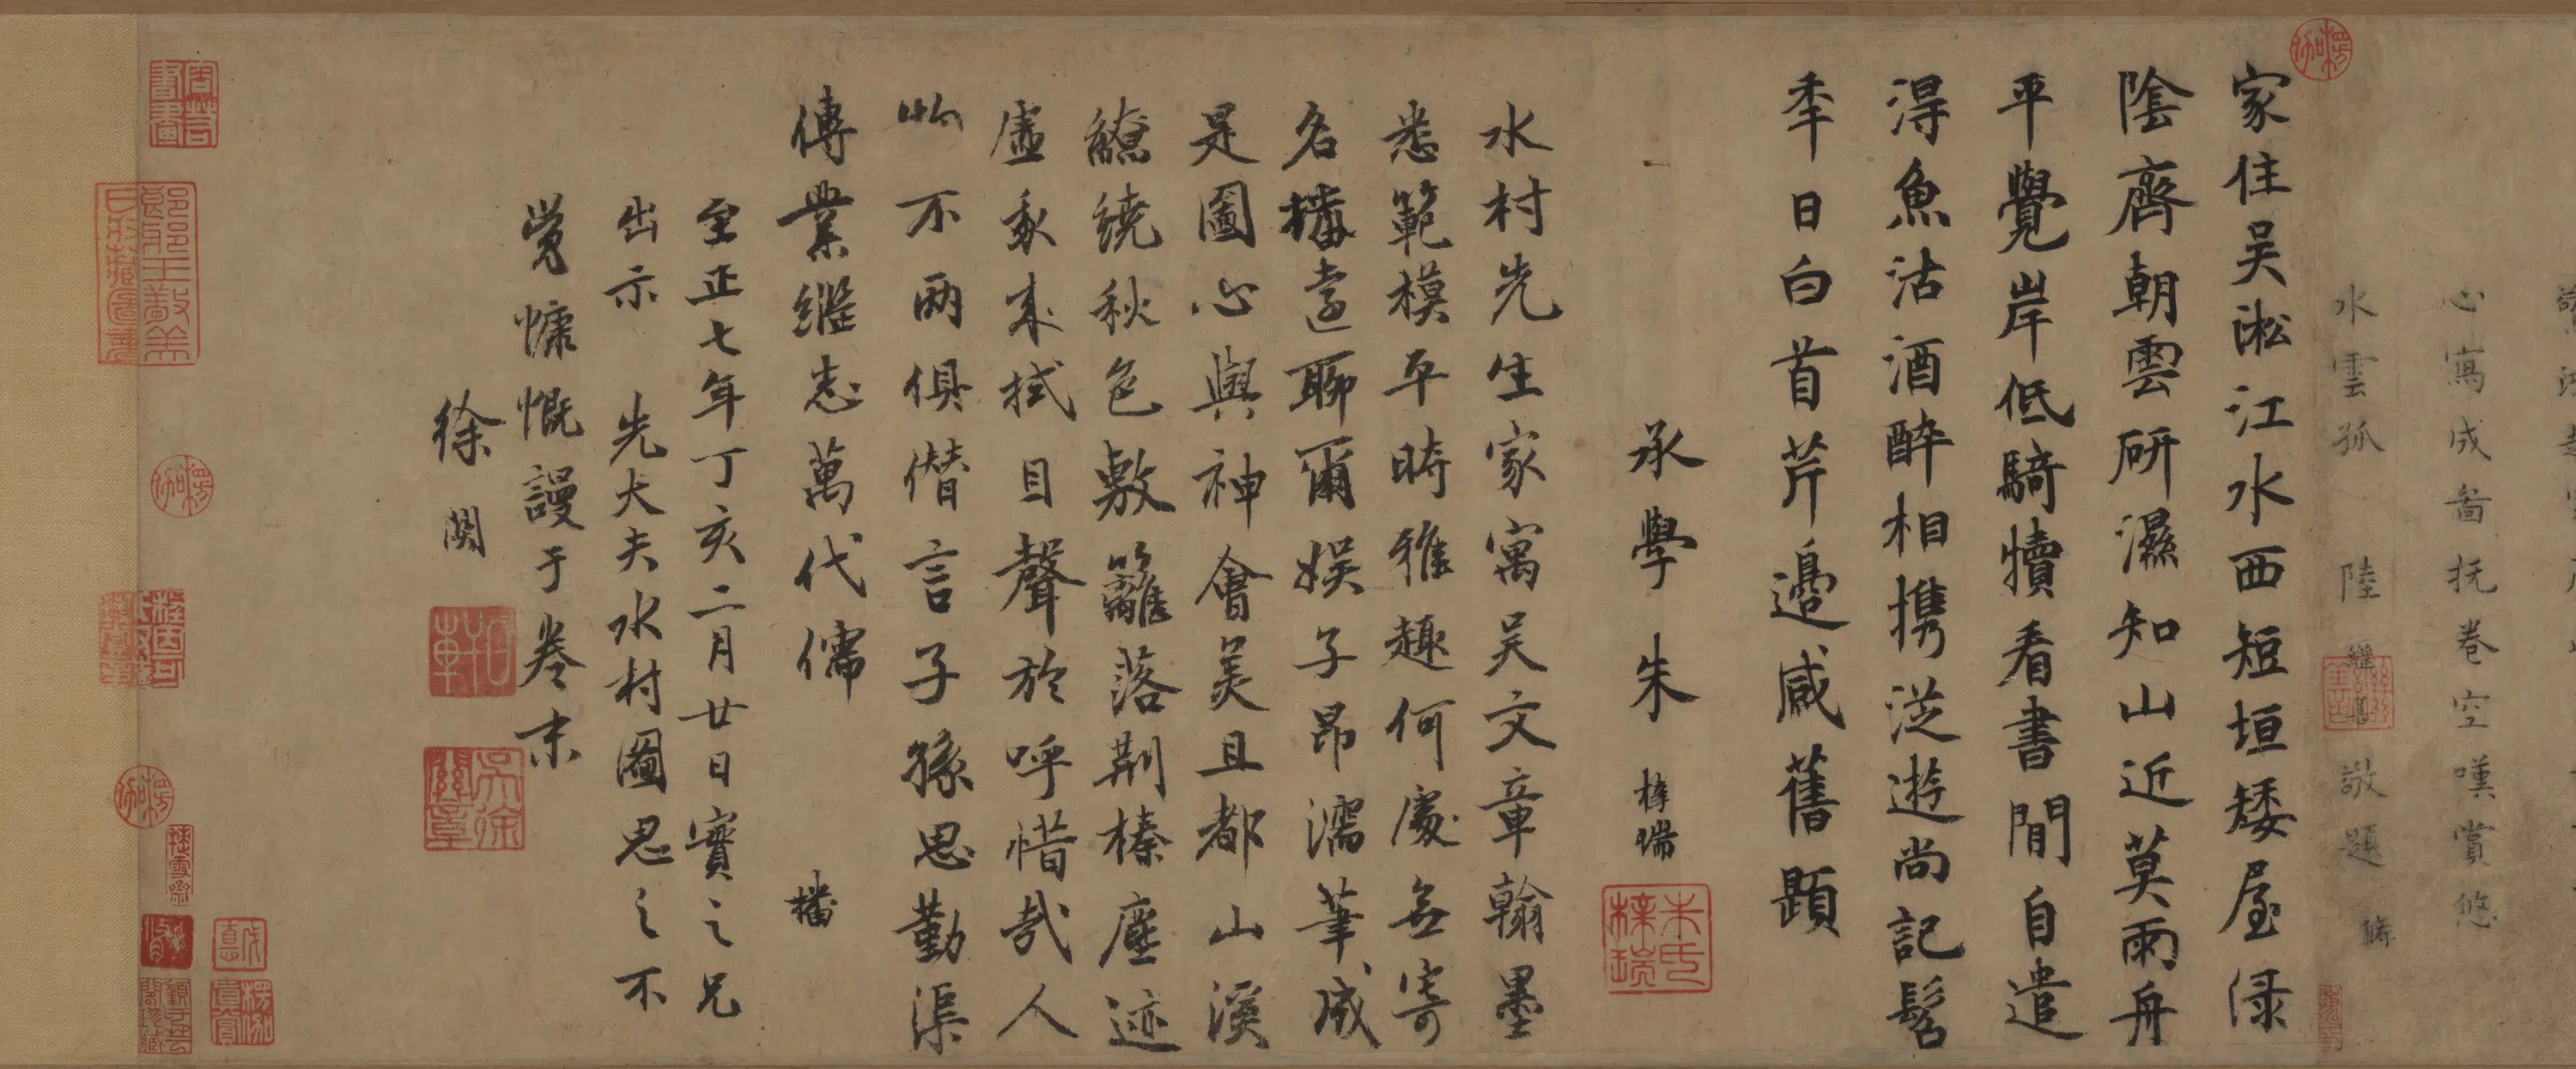 心寫成啚抚卷空嘆賞悠
水雲孤 陸 敬題
家住吴淞江水西短垣矮屋渌
陰齊朝雲研濕知山近莫雨舟
平覺岸低騎犢看書閒自遣
淂魚沽酒醉相携泛遊尚記髫
季日白首芹邊感舊題
承學朱梓瑞
水村先生家寓吴文章翰墨
悉範模平時雅趣何處無寄
名播遠聊爾娱子昂濡筆成
是圖心與神會美且都山溪
繚繞秋色敷籬落荆榛塵迹
虚 来拭目聲於呼惜哉人
物不兩俱僭言子孫思勤渠
傳業繼志萬代儒 播
至正七年丁亥二月廿日寶之兄
出示 先大夫水村圖思之不
覺慷慨謾于卷末
徐関
朱氏梓瑞